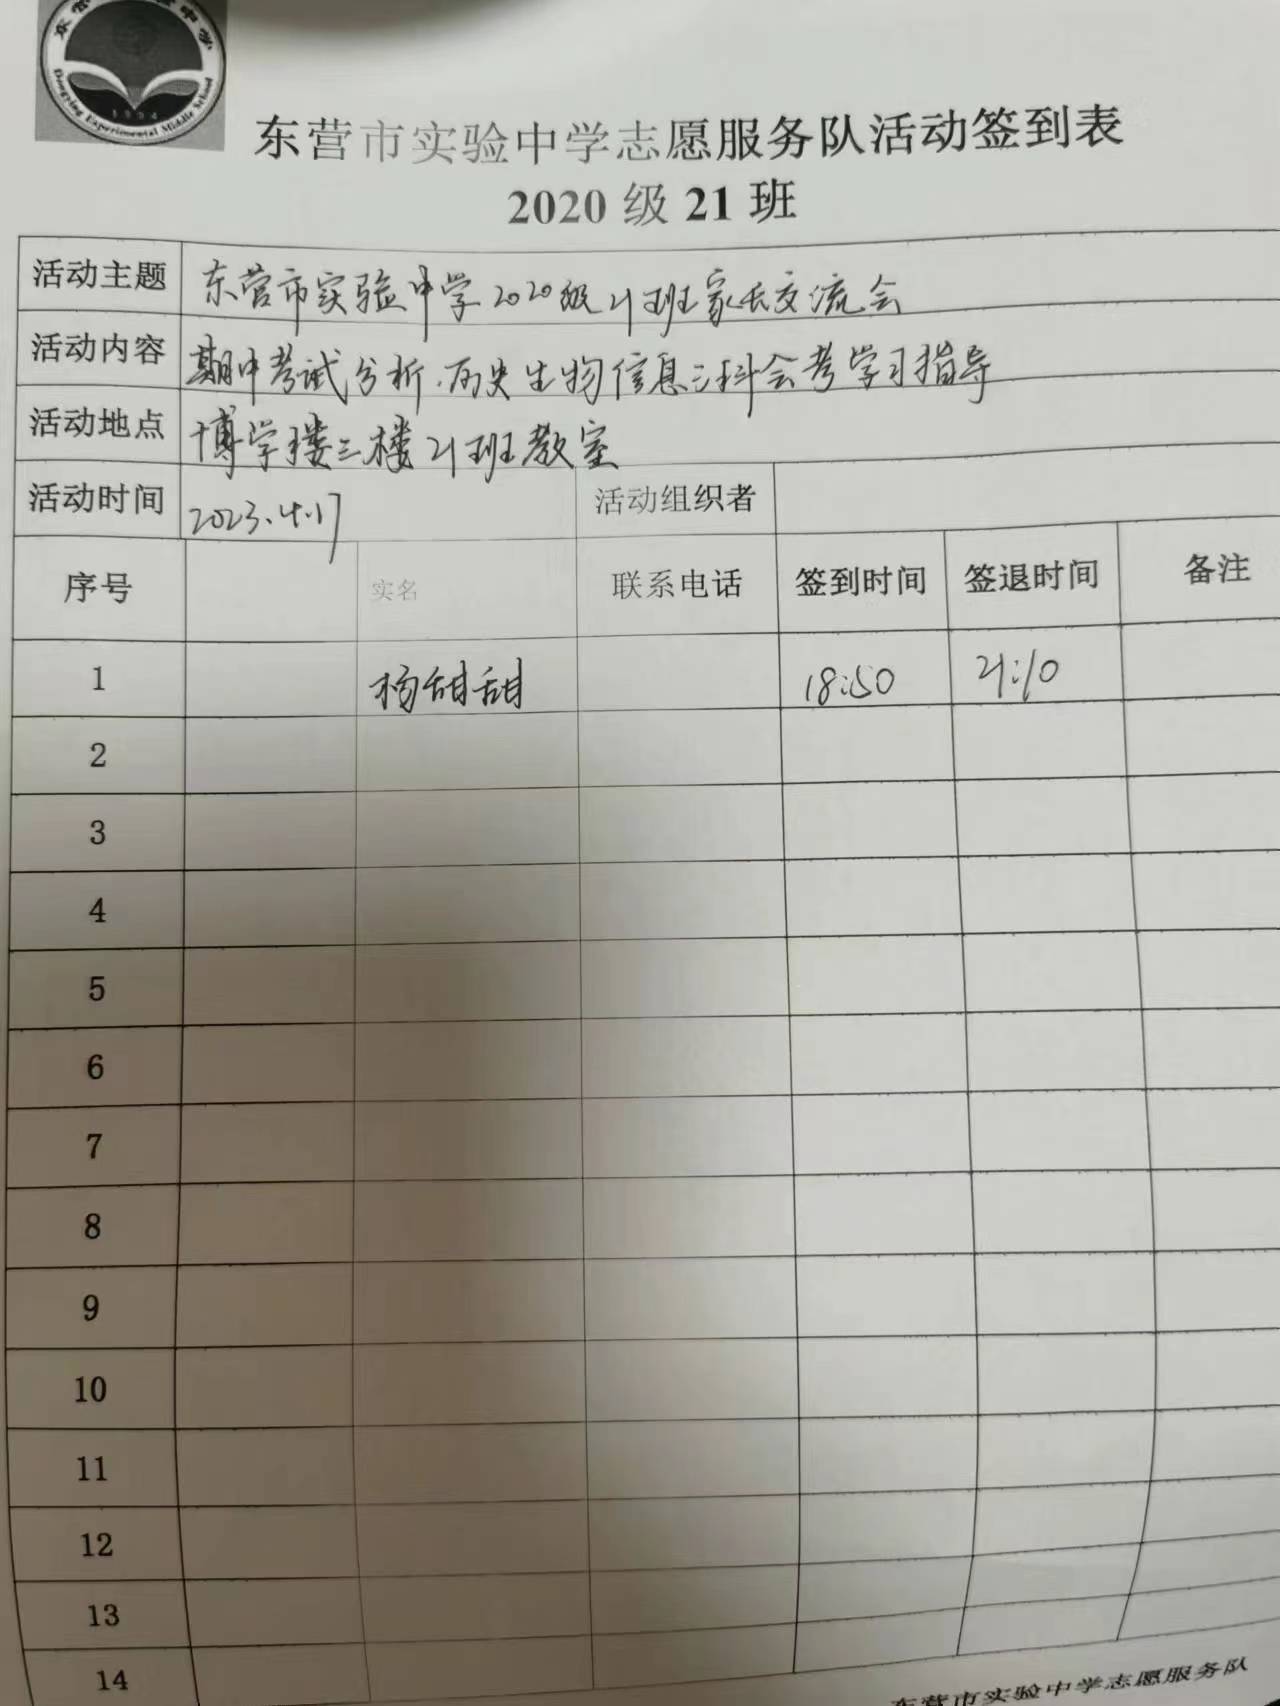 Dongying Experimental Middle School
1994
东营市实验中学志愿服务队活动签到表
2020 级 21 班
活动主题 东营市实验中学2020级21班家长交流会
活动内容 期中考试分析.历史生物信息三科会考学习指导
活动地点 博学楼三楼21班教室
活动时间 2023.4.17 活动组织者
序号 实名 联系电话 签到时间 签退时间 备注
1 杨甜甜 18:50 21:10
2
3
4
5
6
7
8
9
10
11
12
13
14
东营市实验中学志愿服务队